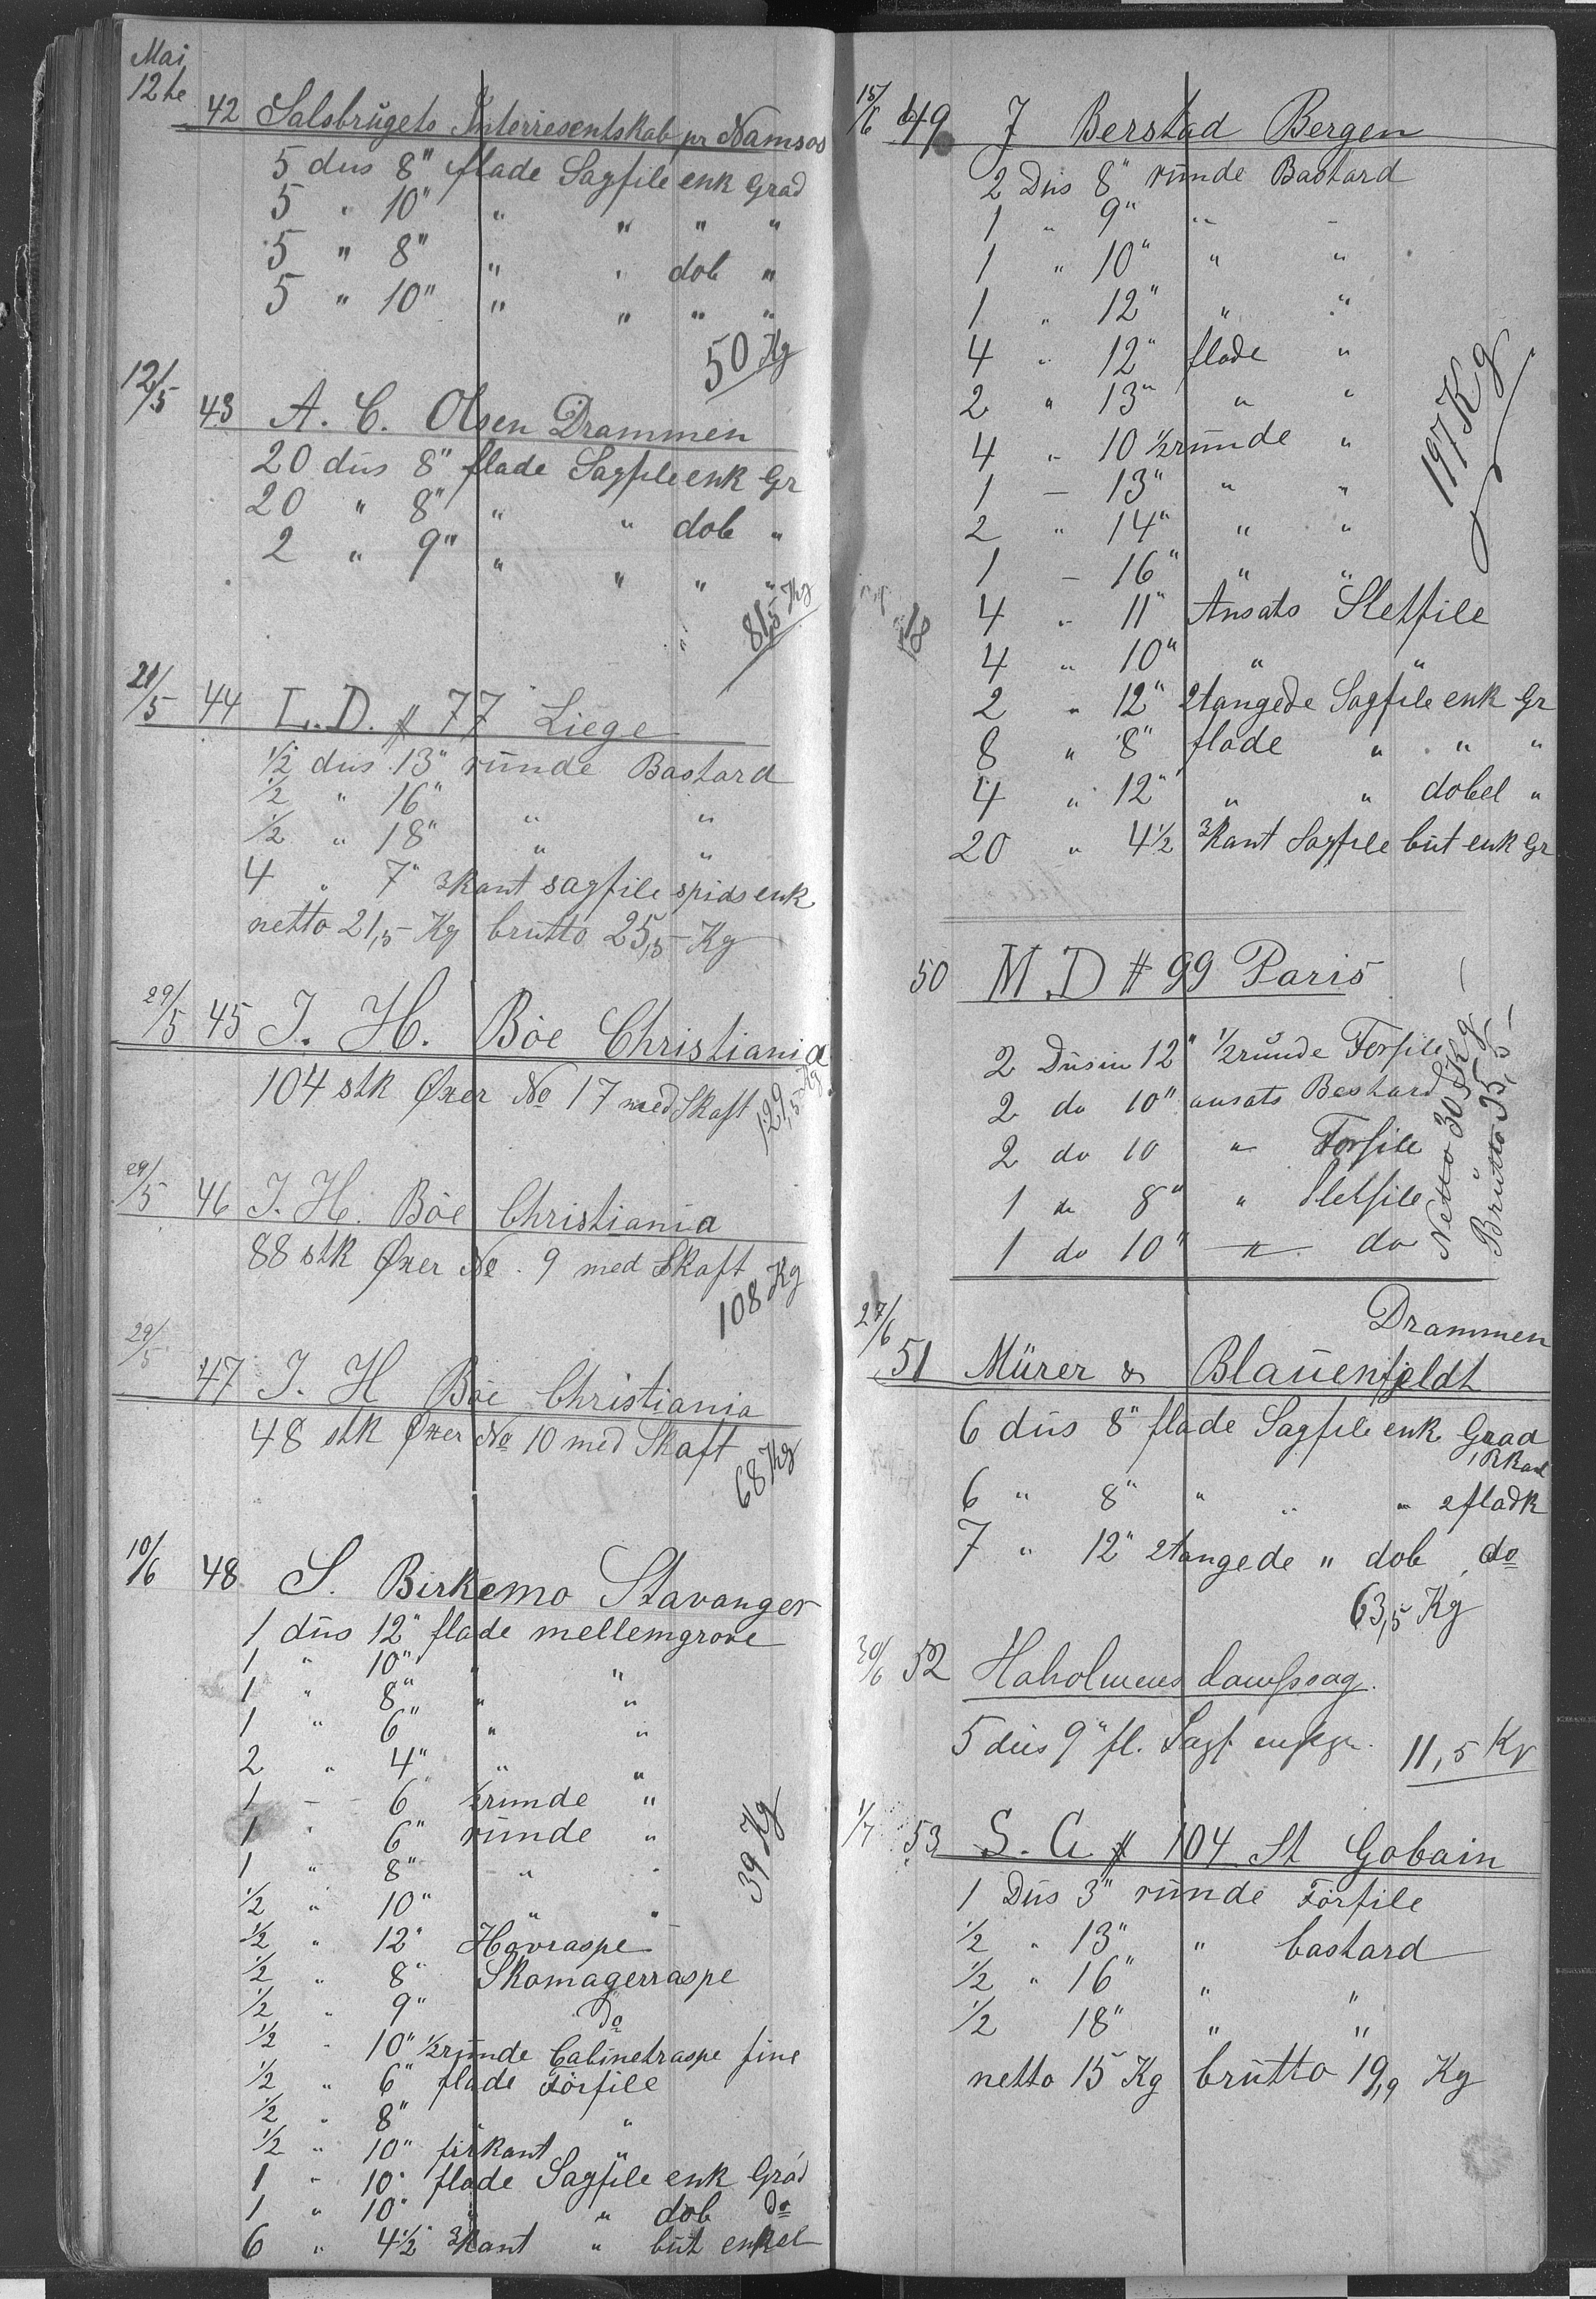 Mai
12te
42 Salsbrugets Interresentskab pr Namsos
5 dus 8" flade Sagfile enk Grad
5 " 10" " " " "
5 " 8" " " dob "
5 " 10" " " " "
50 Kg
12/5 43 A. C. Olsen Drammen
20 dus 8" flade Sagfile enk Gr
20 " 8" " " dob "
2 " 9" " " " "
81,5 Kg
21/5 44 L. D. # 77 Liege
1/2 dus 13" runde Bastard
1/2 " 16" " "
1/2 " 18" " "
4 " 7" 3kant sagfile spids enk
netto 21,5 Kg brutto 25,5 Kg
29/5 45 J. H. Böe Christiania
104 stk Øxer No 17 med Skaft
129,5 Kg
29/5 46 J. H. Böe Christiania
88 stk Øxer No. 9 med Skaft
108 Kg
29/5 47 J. H Böe Christiania
48 stk Øxer No 10 med Skaft
68 Kg
10/6 48 S. Birkemo Stavanger
1 dus 12" flade mellemgrove
1 " 10" " "
1 " 8" " "
1 " 6" " "
2 " 4" " "
1 - 6" 1/2runde "
1 " 6" runde "
1 " 8" " "
1/2 " 10" " "
39 Kg
1/2 " 12" Hovraspe
1/2 " 8" Skomagerraspe
1/2 " 9" Do
1/2 " 10" 1/2runde Cabinetraspe fine
1/2 " 6" flade Förfile
1/2 " 8" " "
1/2 " 10" firkant "
1 " 10" flade Sagfile enk Grad
1 " 10" " " dob Do
6 " 4 1/2" 3kant " but enkel
15/6 49 J Berstad Bergen
2 Dus 8" runde Bastard
1 " 9" " "
1 " 10" " "
1 " 12" " "
4 " 12" flade "
2 " 13" " "
4 " 10 1/2runde "
1 - 13" " "
2 " 14" " "
1 - 16" " "
197 Kg
4 " 11" Ansats Sletfile
18
4 " 10" " "
2 " 12" 2tangede Sagfile enk Gr
8 " 8" flade " " "
4 " 12" " " dobel "
20 " 4 1/2 3kant Sagfile but enk Gr
50 M. D # 99 Paris
2 Dusin 12" 1/2runde Forfile
2 do 10" ansats Bastard
2 do 10 " Forfile
1 do 8" " Sletfile
1 do 10" " do
Netto 30 Kg
Brutto 35,5
27/6 Drammen
51 Mürer & Blauenfeldt
6 dus 8" flade Sagfile enk Grad
1 Rkant
6 " 8" " " " 2fladk
7 " 12" 2tangede " dob do
63,5 Kg
30/6 52 Haholmens dampsag.
5 dus 9" fl. Sagf. enkgr. 11,5 Kg
1/7 53 S. G # 104 St Gobain
1 Dus 3" runde Förfile
1/2 " 13" " bastard
1/2 " 16" " "
1/2 18" " "
netto 15 Kg brutto 19,9 Kg